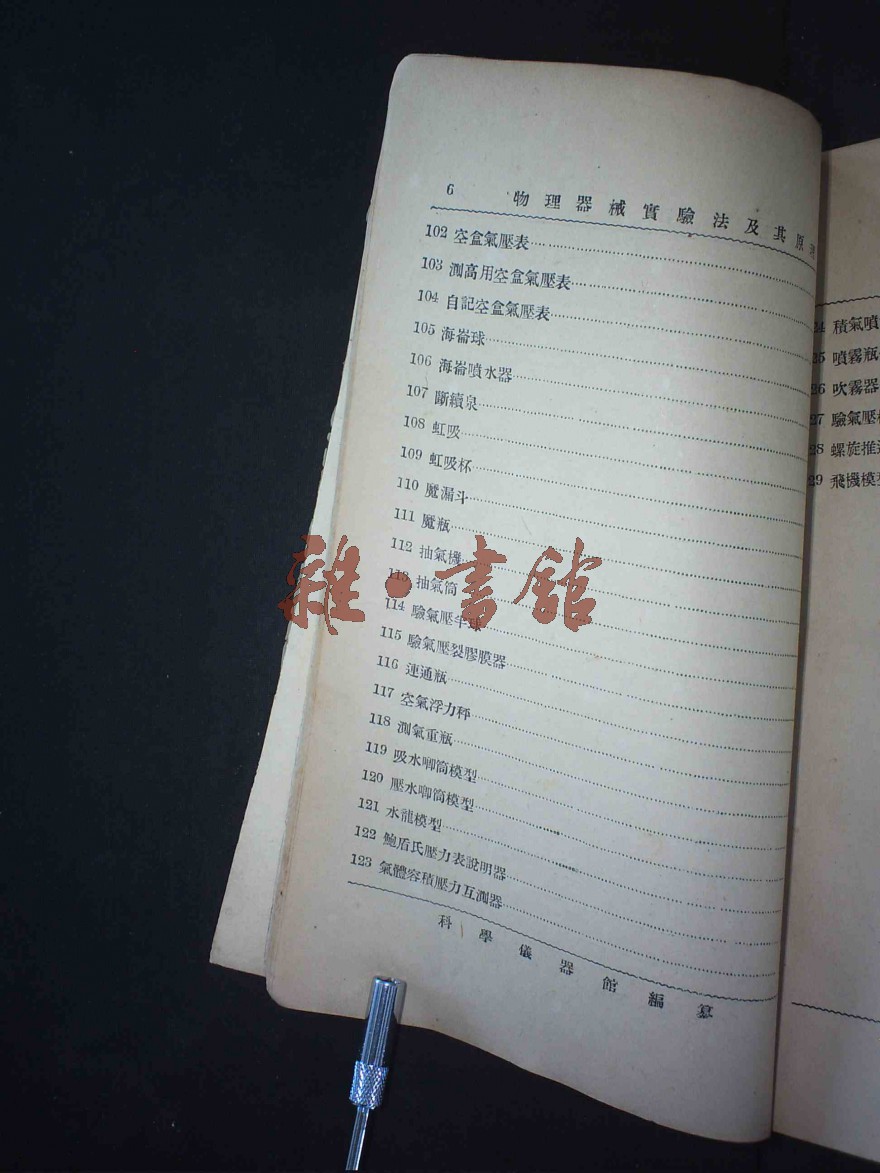 6 物理器械實驗法及其原理
102 空盒氣壓表
103 測高用空盒氣壓表
104 自記空盒氣壓表
105 海崙球
106 海崙噴水器
107 斷續泉
108 虹吸
109 虹吸杯
110 魔漏斗
111 魔瓶
112 抽氣機
113 抽氣筒
114 驗氣壓半球
115 驗氣壓裂膠膜器
116 連通瓶
117 空氣浮力秤
118 測氣重瓶
119 吸水喞筒模型
120 壓水喞筒模型
121 水龍模型
122 鮑盾氏壓力表說明器
123 氣體容積壓力互測器
科學儀器館編纂
雜·書館
24 積氣噴
25 噴霧瓶
26 吹霧器
27 驗氣壓
28 螺旋推
29 飛機模型